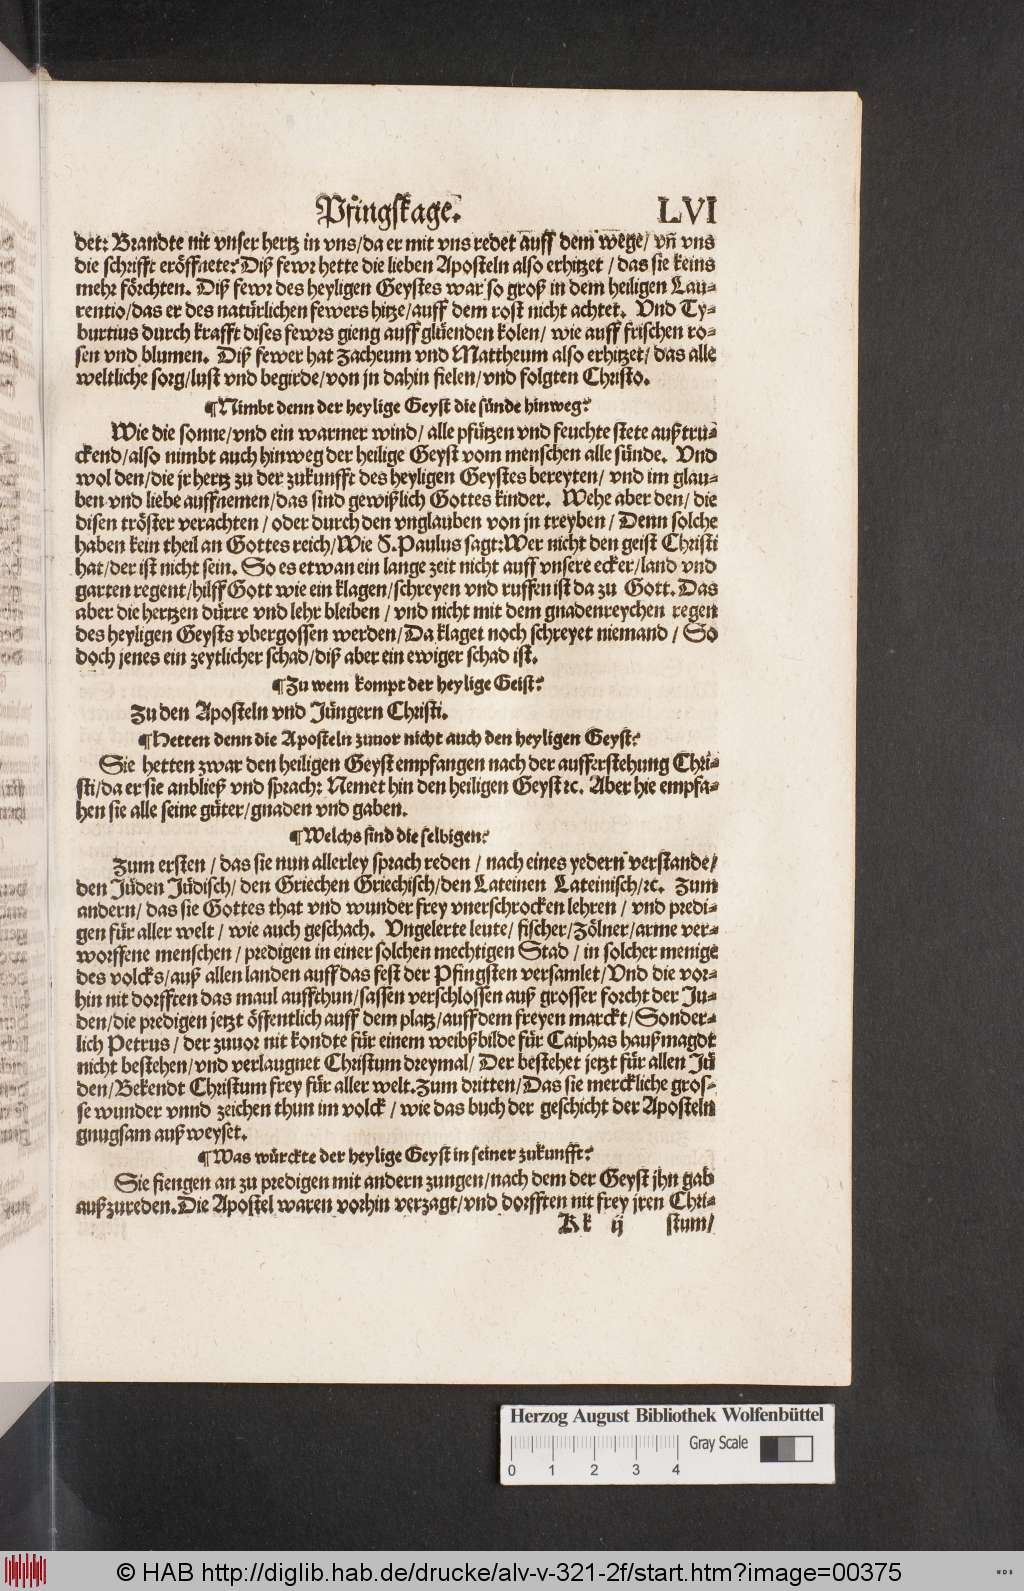 Pfingstage. LVI
det: Brandte nit vnser hertz in vns/da er mit vns redet auff dem wege/ vñ vns
die schrifft eröffnete? Diß fewr hette die lieben Aposteln also erhitzet / das sie keins
mehr förchten. Diß fewr des heyligen Geystes war so groß in dem heiligen Lau-
rentio/das er des natürlichen fewers hitze/auff dem rost nicht achtet. Vnd Ty-
burtius durch krafft dises fewrs gieng auff glüenden kolen/ wie auff frischen ro-
sen vnd blumen. Diß fewer hat Zacheum vnd Mattheum also erhitzet/ das alle
weltliche sorg/lust vnd begirde/von jn dahin fielen/vnd folgten Christo.
¶Nimbt denn der heylige Geyst die sünde hinweg?
Wie die sonne/vnd ein warmer wind/ alle pfützen vnd feuchte stete auß tru-
ckend/also nimbt auch hinweg der heilige Geyst vom menschen alle sünde. Vnd
wol den/die jr hertz zu der zukunfft des heyligen Geystes bereyten/ vnd im glau-
ben vnd liebe auffnemen/das sind gewißlich Gottes kinder. Wehe aber den/ die
disen tröster verachten / oder durch den vnglauben von jn treyben / Denn solche
haben kein theil an Gottes reich/Wie S. Paulus sagt:Wer nicht den geist Christi
hat/der ist nicht sein. So es etwan ein lange zeit nicht auff vnsere ecker/land vnd
garten regent/hilff Gott wie ein klagen/schreyen vnd ruffen ist da zu Gott. Das
aber die hertzen dürre vnd lehr bleiben / vnd nicht mit dem gnadenreychen regen
des heyligen Geysts vbergossen werden/Da klaget noch schreyet niemand / So
doch jenes ein zeytlicher schad/diß aber ein ewiger schad ist.
¶Zu wem kompt der heylige Geist?
Zu den Aposteln vnd Jüngern Christi.
¶Hetten denn die Aposteln zuuor nicht auch den heyligen Geyst?
Sie hetten zwar den heiligen Geyst empfangen nach der aufferstehung Chri-
sti/da er sie anbließ vnd sprach: Nemet hin den heiligen Geyst ꝛc. Aber hie empfa-
hen sie alle seine güter/gnaden vnd gaben.
¶Welchs sind die selbigen?
Zum ersten / das sie nun allerley sprach reden / nach eines yedern verstande/
den Jüden Jüdisch/ den Griechen Griechisch/den Lateinen Lateinisch/ꝛc. Zum
andern/ das sie Gottes that vnd wunder frey vnerschrocken lehren / vnd predi-
gen für aller welt / wie auch geschach. Vngelerte leute/ fischer/Zölner/arme ver-
worffene menschen / predigen in einer solchen mechtigen Stad / in solcher menige
des volcks/auß allen landen auff das fest der Pfingsten versamlet/Vnd die vor-
hin nit dorfften das maul auffthun/sassen verschlossen auß grosser forcht der Ju-
den/die predigen jetzt öffentlich auff dem platz/auff dem freyen marckt/Sonder-
lich Petrus / der zuuor nit kondte für einem weibßbilde für Caiphas haußmagdt
nicht bestehen/vnd verlaugnet Christum dreymal/ Der bestehet jetzt für allen Jü
den/Bekendt Christum frey für aller welt.Zum dritten/Das sie merckliche gros-
se wunder vnnd zeichen thun im volck / wie das buch der geschicht der Aposteln
gnugsam außweyset.
¶Was würckte der heylige Geyst in seiner zukunfft?
Sie fiengen an zu predigen mit andern zungen/nach dem der Geyst jhn gab
außzureden.Die Apostel waren vorhin verzagt/vnd dorfften nit frey jren Chri-
Kk ij stum/
Herzog August Bibliothek Wolfenbüttel
0 1 2 3 4 Gray Scale
© HAB http://diglib.hab.de/drucke/alv-v-321-2f/start.htm?image=00375